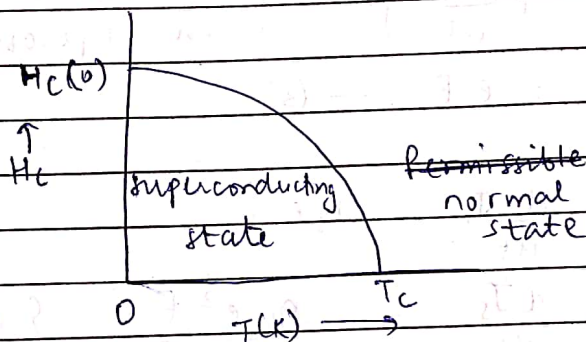 Hc(0)
↑
Hc
superconducting
state
Permissible
normal
state
0
Tc
T(K) →